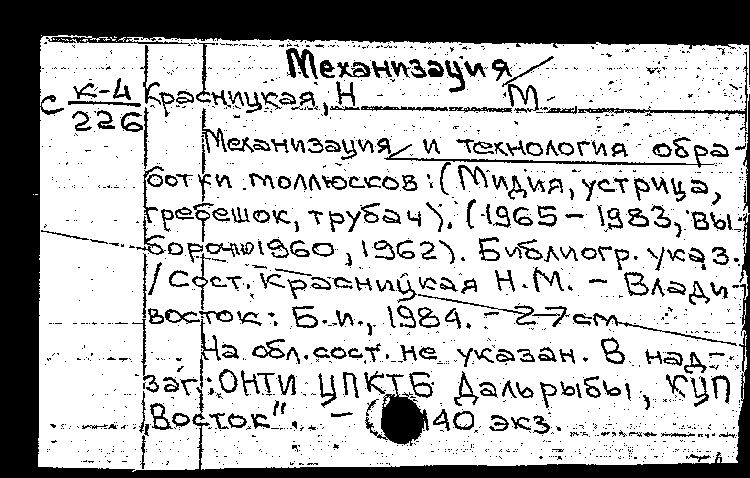 Механизация
с К-4 Красницкая, Н М
226
Механизация и технология обра-
ботки моллюсков: (Мидия, устрица,
гребешок, трубач). (1965 – 1983, вы-
борочно 1960, 1962). Библиогр. указ.
/ Сост. Красницкая Н.М. – Влади-
восток: Б.и., 1984. – 27 см.
На обл. сост. не указан. В над-
заг.: ОНТИ ЦПКТБ Дальрыбы, КУП
„Восток". – 140 экз.